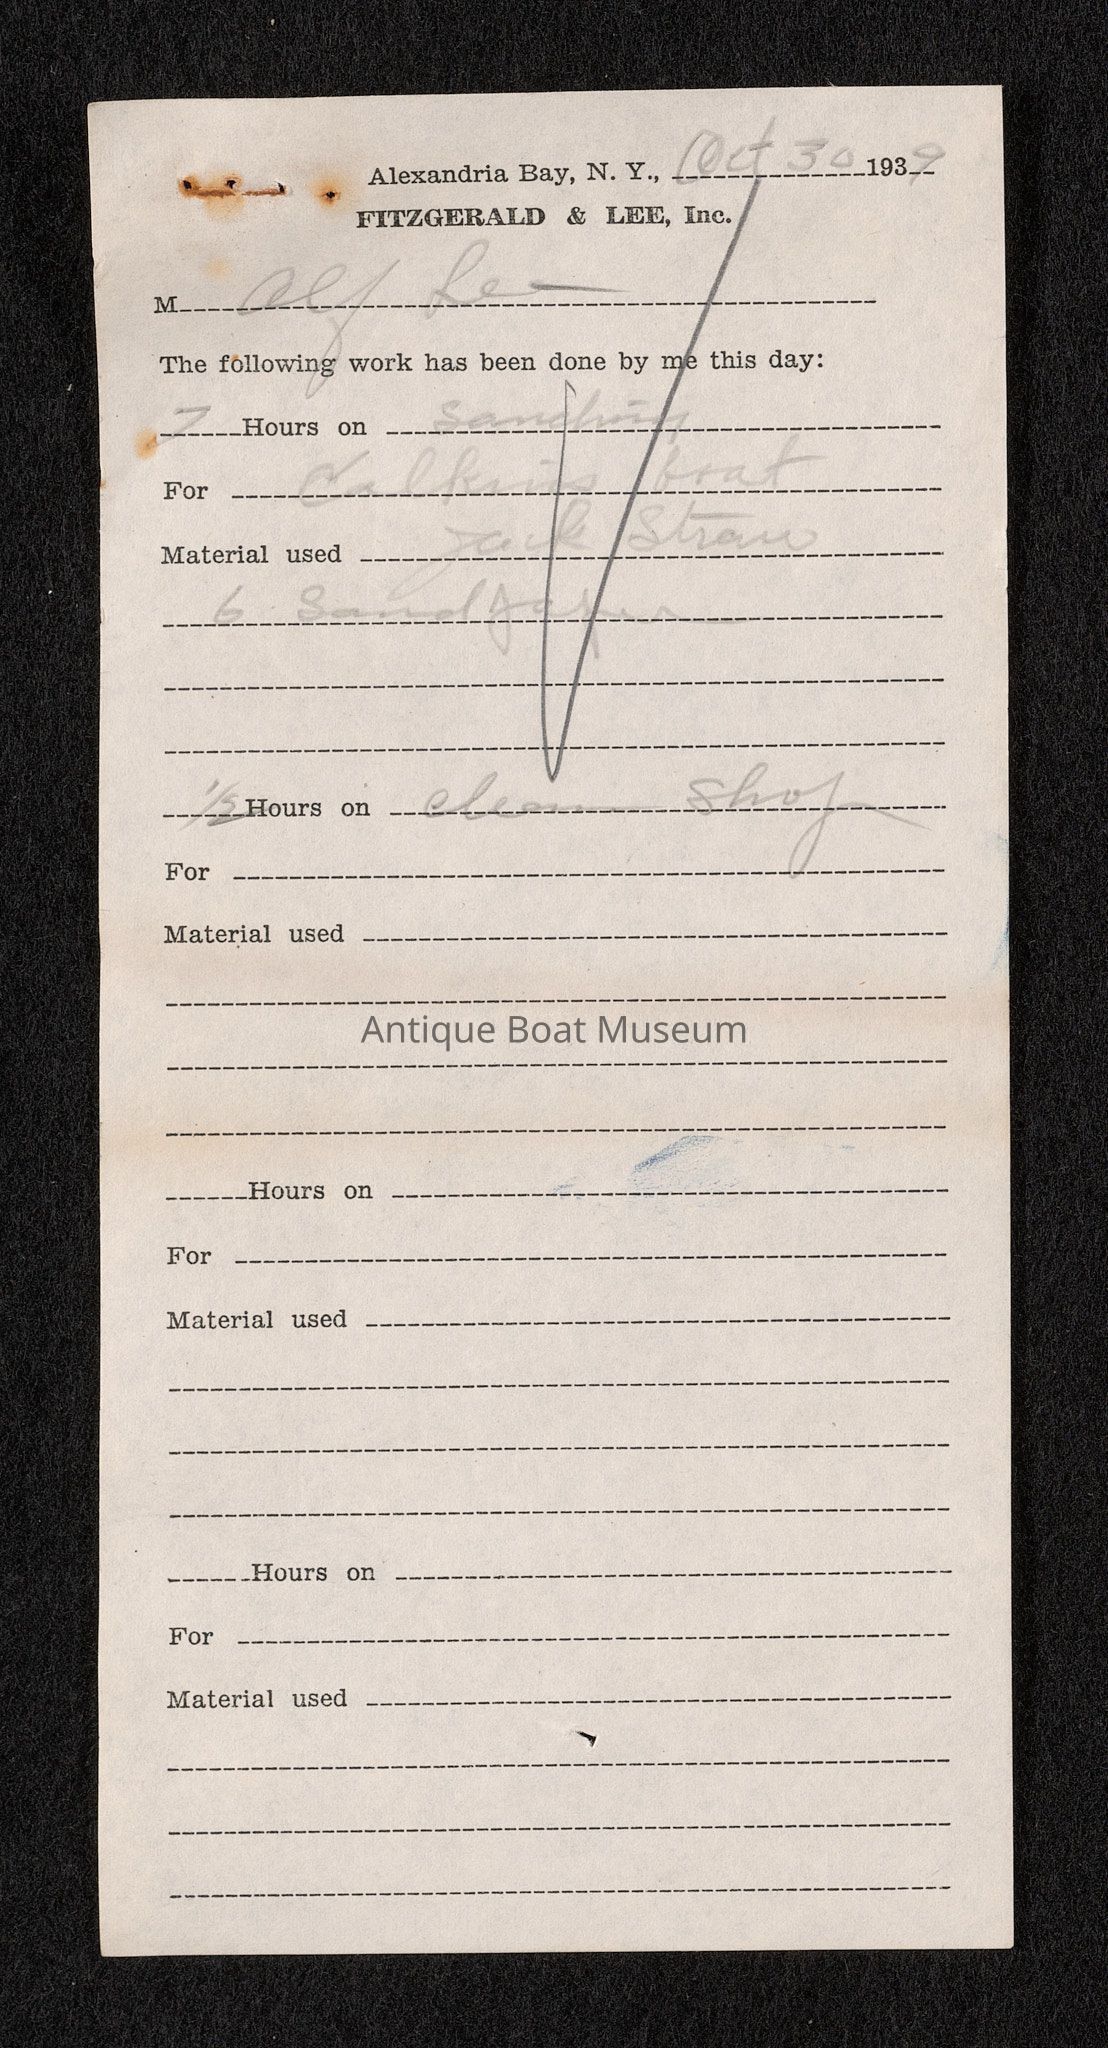 Alexandria Bay, N. Y., Oct 30 1939
FITZGERALD & LEE, Inc.
M Alf Lee
The following work has been done by me this day:
7 Hours on sanding
For Calkins boat
Material used Jack Straw
6 Sandpaper
1/2 Hours on clean shop
For
Material used
Antique Boat Museum
Hours on
For
Material used
Hours on
For
Material used